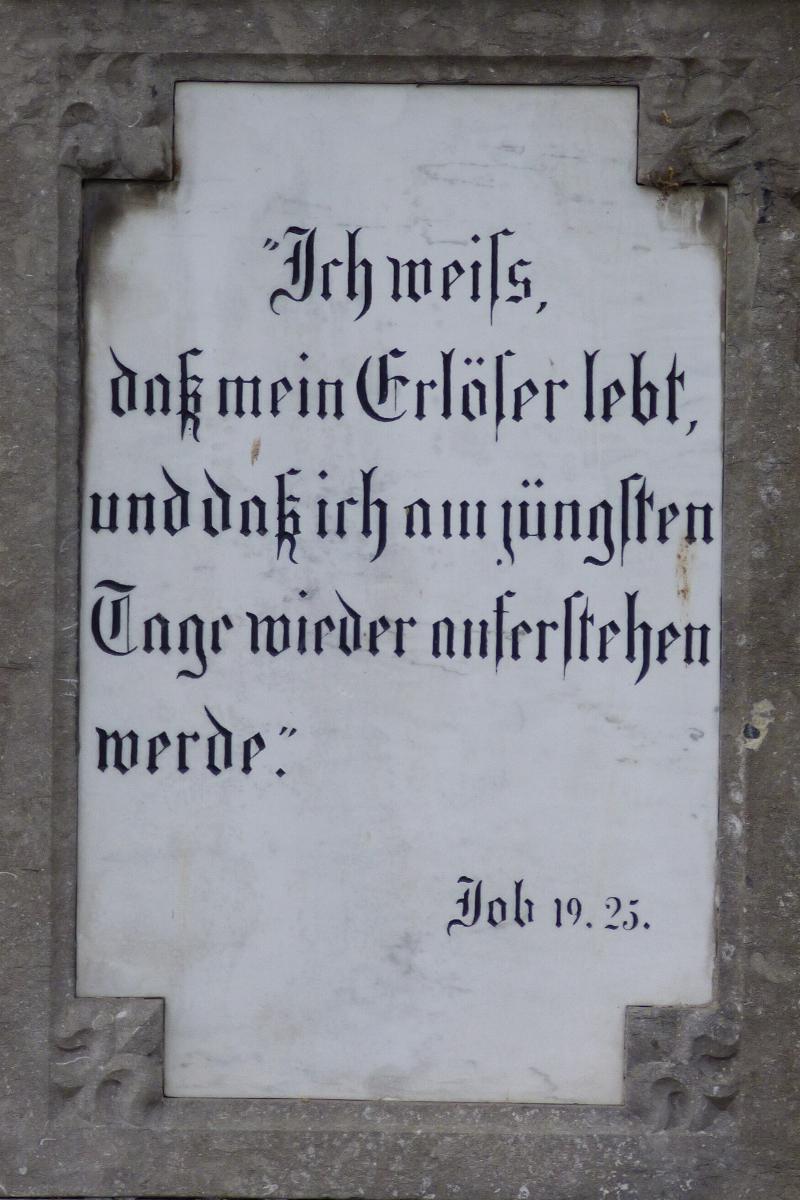 "Ich weiss,
daß mein Erlöser lebt,
und daß ich am jüngsten
Tage wieder auferstehen
werde."
Job 19. 25.